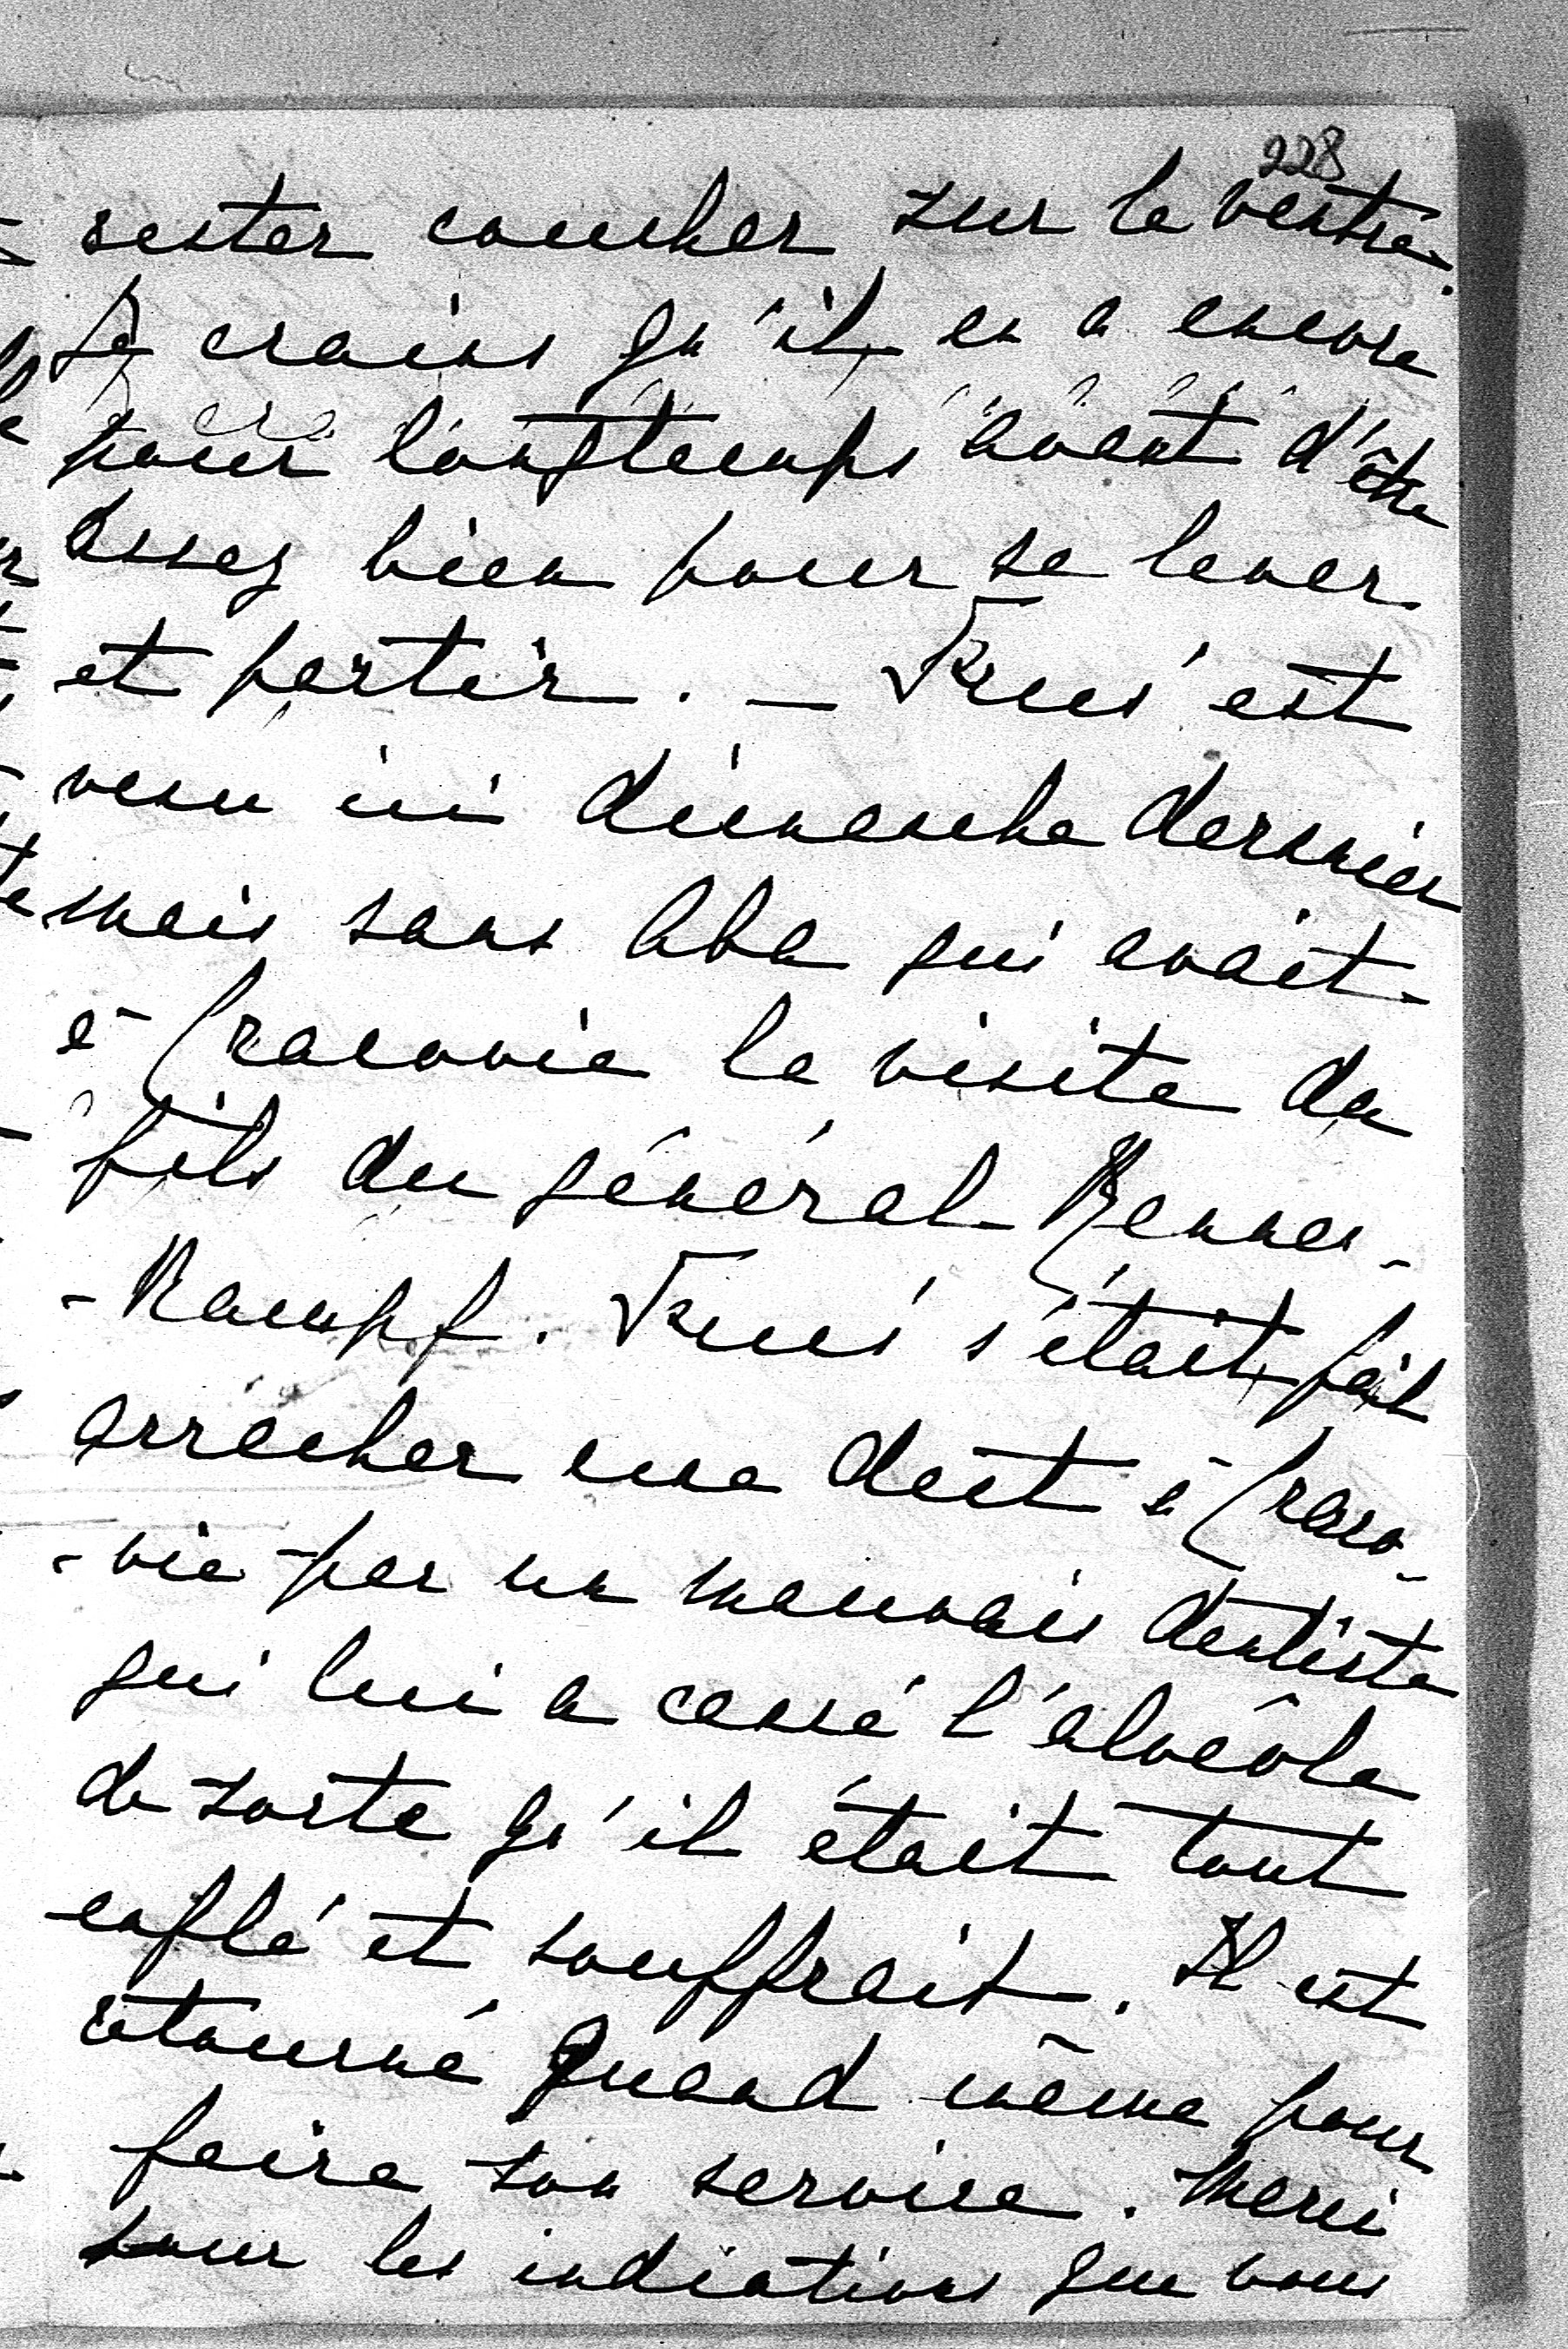 228
rester coucher sur le ventre.
Je crains qu'il en a encore
pour longtemps avant d'être
assez bien pour se lever
et partir. — est
venu ici dimanche dernier
mais sans Aba qui avait
à Cracovie la visite du
fils du général Rennen-
-Kampf. s'était fait
arracher une dent à Craco-
-vie par un mauvais dentiste
qui lui a cassé l'alvéole
de sorte qu'il était tout
enflé et souffrait. Il est
retourné quand même pour
faire son service. Merci
pour les indications que vous